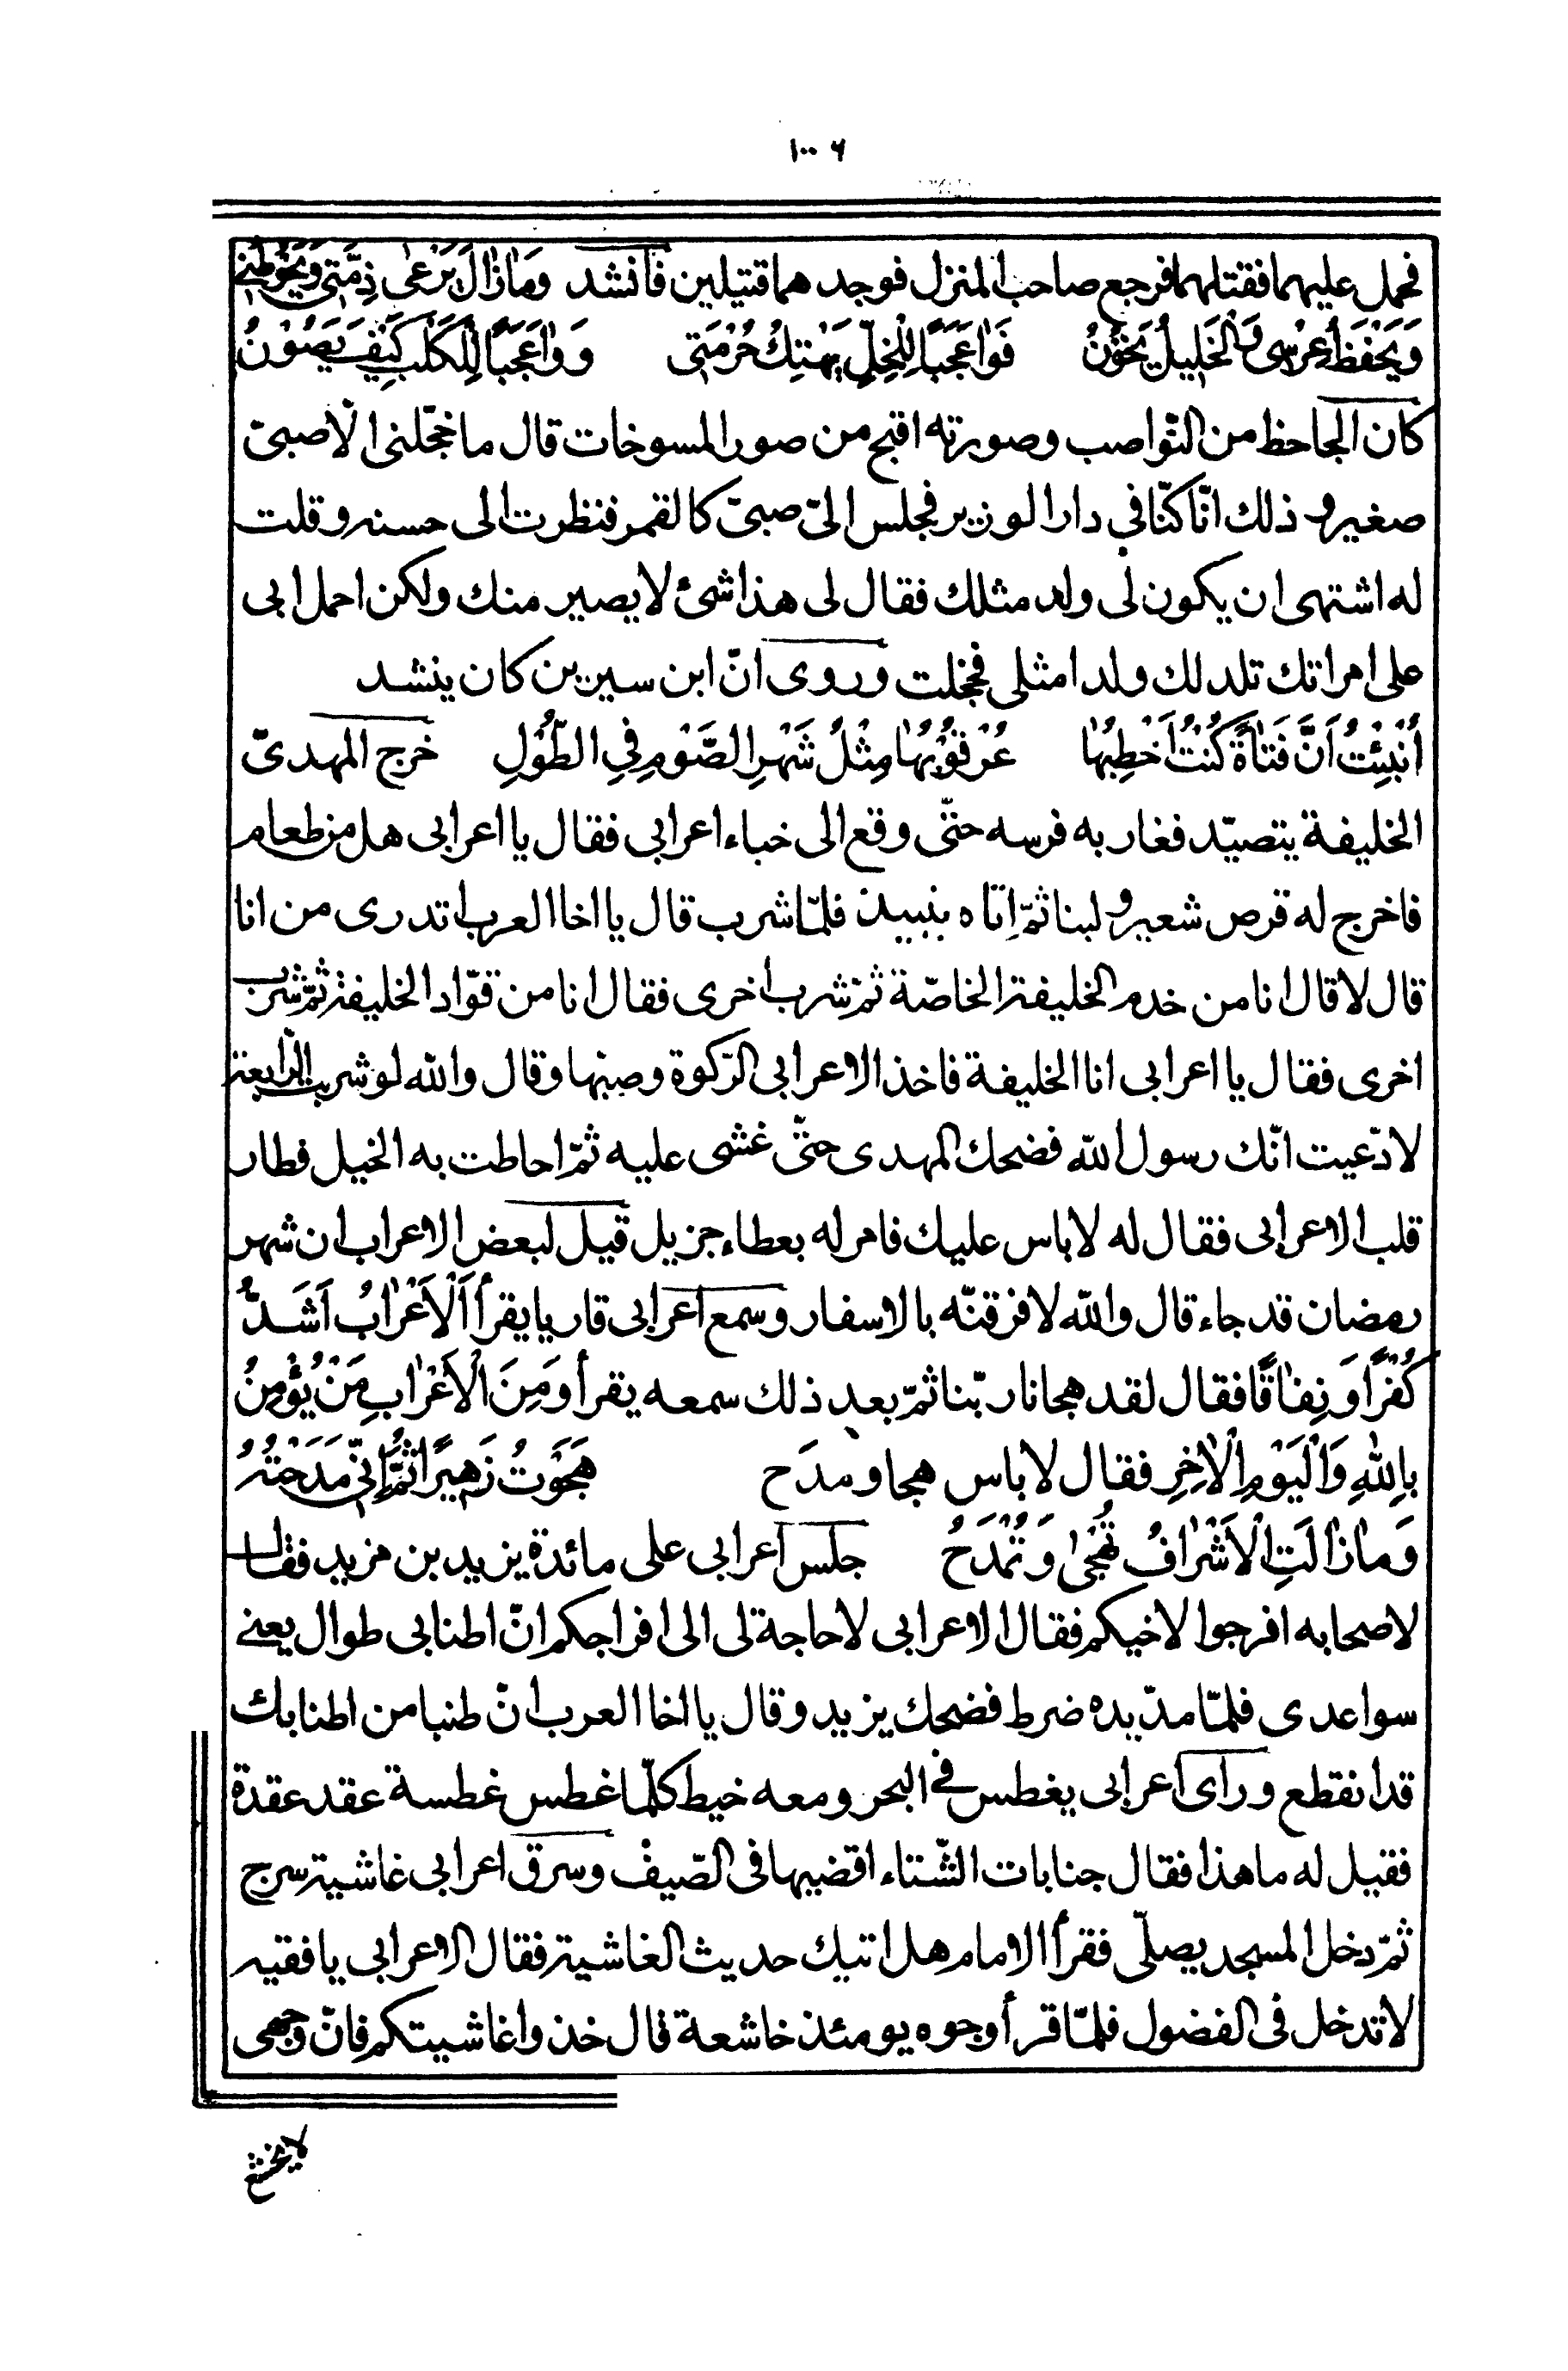 ١٠٠٦
فحمل عليهما فقتلهما فرجع صاحب المنزل فوجدهما قتيلين فانشد وَمٰازٰالَ يَرْعىٰ ذِمَّتي وَيَحُوطُني
وَيَحْفَظُ عِرْسى وَالْخَليلُ يَخُونُ فَوٰاعَجَبًا لِلْخِلِّ يَهْتِكُ حُرْمَتي وَوٰاعَجَبًا لِلْكَلْبِ كَيْفَ يَصُوْنُ
كان الجاحظ من النّواصب وصورته اقبح من صور المسوخات قال ما خجّلنى الّا صبىّ
صغير و ذلك انّا كنّا في دار الوزير فجلس الىّ صبىّ كالقمر فنظرت الى حسنه و قلت
له اشتهى ان يكون لى ولد مثلك فقال لى هذا شئ لا يصير منك ولكن احمل ابى
على امراتك تلد لك ولدا مثلى فخجلت وروى انّ ابن سيرين كان ينشد
اُنْبِئْتُ اَنَّ فَتٰاةً كُنْتُ اَخْطِبُهٰا عُرْقُوْبُهٰا مِثْلُ شَهْرِ الصَّوْمِ فِي الطُّوْلِ خرج المهدىّ
الخليفة يتصيّد فغار به فرسه حتّى وقع الى خباء اعرابى فقال يا اعرابى هل من طعام
فاخرج له قرص شعير و لبنا ثمّ اتاه بنبيذ فلمّا شرب قال يا اخا العرب اتدرى من انا
قال لا قال انا من خدم الخليفة الخاصّة ثمّ شرب اخرى فقال انا من قوّاد الخليفة ثمّ شرب
اخرى فقال يا اعرابى انا الخليفة فاخذ الاعرابى الرّكوة وصبّها وقال والله لو شربت الرّابعة
لادّعيت انّك رسول الله فضحك المهدى حتّى غشى عليه ثمّ احاطت به الخيل فطار
قلب الاعرابى فقال له لا باس عليك فامر له بعطاء جزيل قيل لبعض الاعراب ان شهر
رمضان قد جاء قال والله لافرّقنّه بالاسفار وسمع اعرابى قاريا يقرأ اَلْاَعْرٰابُ اَشَدُّ
كُفْرًا وَ نِفٰاقًا فقال لقد هجانا ربّنا ثمّ بعد ذلك سمعه يقرأ وَمِنَ الْاَعْرٰابِ مَنْ يُؤْمِنُ
بِاللهِ وَالْيَوْمِ الْاٰخِرِ فقال لا باس هجا و مدَح هَجَوْتُ زُهَيْرًا ثُمَّ اِنّى مَدَحْتُهُ
وَمٰازٰالَتِ الْاَشْرٰافُ تُهْجىٰ وَ تُمْدَحُ جلس اعرابى على مائدة يزيد بن مزيد فقال
لاصحابه افرجوا لاخيكم فقال الاعرابى لا حاجة لى الى افراجكم انّ اطنابى طوال يعنى
سواعدى فلمّا مدّ يده ضرط فضحك يزيد وقال يا اخا العرب انّ طنبا من اطنابك
قد انقطع وراى اعرابى يغطس في البحر ومعه خيط كلّما غطس غطسة عقد عقدة
فقيل له ما هذا فقال جنابات الشّتاء اقضيها فى الصّيف وسرق اعرابى غاشية سرج
ثمّ دخل المسجد يصلّى فقرأ الامام هل اتيك حديث الغاشية فقال الاعرابى يا فقيه
لا تدخل فى الفضول فلمّا قرأ وجوه يومئذ خاشعة قال خذوا غاشيتكم فانّ وجهى
لا يخشع